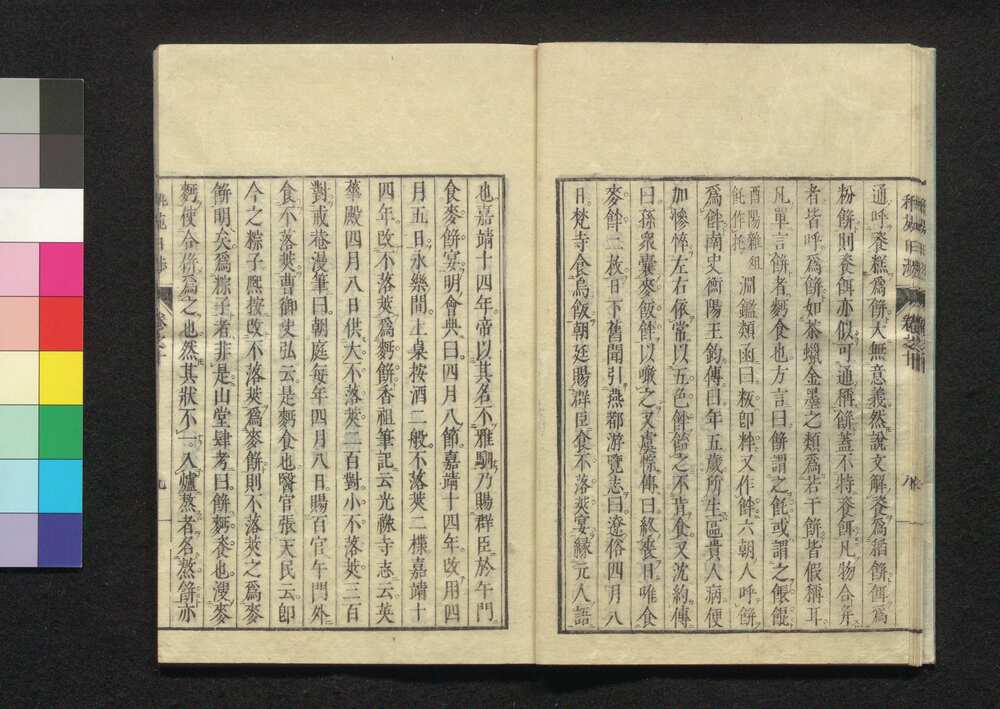 通呼餈糕爲餅大無意義然說文解餈爲稻餅餌爲
粉餅則餈餌亦似可通稱餅蓋不特餈餌凡物合幷
者皆呼爲餅如茶蠟金墨之類爲若干餅皆假稱耳
凡單言餅者麪食也方言曰餅謂之飥或謂之餦餛
酉陽雜俎
飥作托
淵鑑類函曰粄卽粹又作䬳六朝人呼餅
爲䬳南史衡陽王鈞傳曰年五歲所生區貴人病便
加慘悴左右依常以五色䬳飴之不肯食又沈約傳
曰孫衆囊麥飯䬳以噉之又虞悰傳曰終喪日唯食
麥䬳二枚日下舊聞引燕都游覽志曰遼俗四月八
日梵寺食烏飯朝廷賜群臣食不落莢宴緣元人語
也嘉靖十四年帝以其名不雅馴乃賜群臣於午門
食麥餅宴明會典曰四月八節嘉靖十四年改用四
月五日永樂間上桌按酒二般不落莢二楪嘉靖十
四年改不落莢爲麪餅香祖筆記云光祿寺志云英
華殿四月八日供大不落莢二百對小不落莢三百
對戒菴漫筆曰朝庭每年四月八日賜百官午門外
食不落莢曹御史弘云是麪食也醫官張天民云卽
今之粽子熈按改不落莢爲麥餅則不落莢之爲麥
餅明矣爲粽子者非是山堂肆考曰餅麪餈也溲麥
麪使合倂爲之也然其狀不一入爐熬者名熬餅亦
九